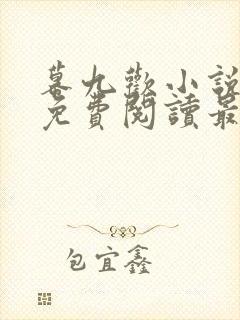 幕九歡小說
免費閱讀最
包宜鑫